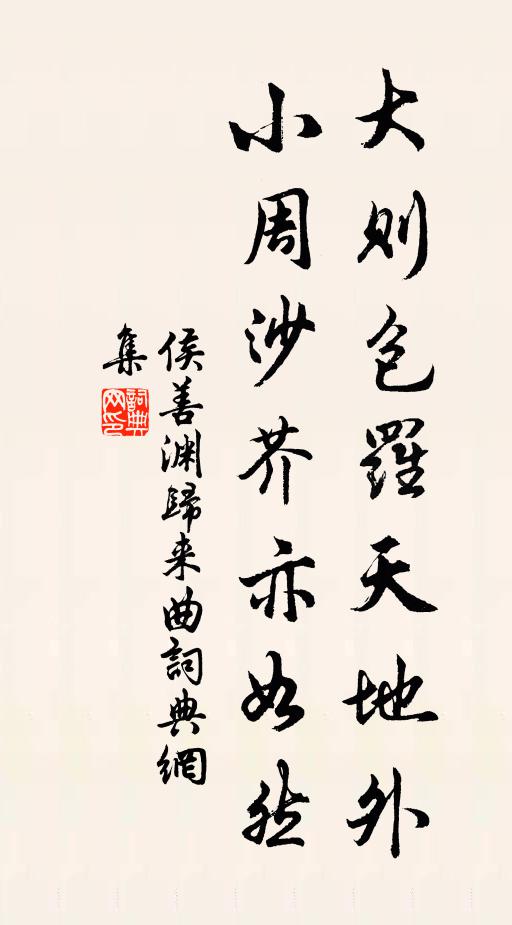 大則包羅天地外
小周沙芥亦如然
侯善渊歸来曲詞典網
集
詞典
网印